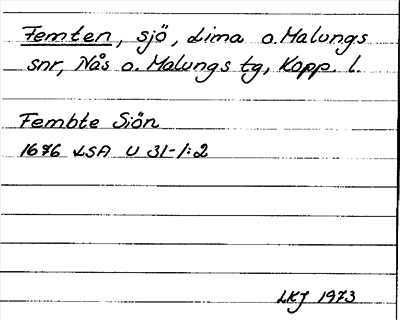 Femten, sjö, Lima o. Malungs
snr, Nås o. Malungs tg, Kopp. l.
Fembte Siön
1676 LSA U 31-1:2
LKJ 1973